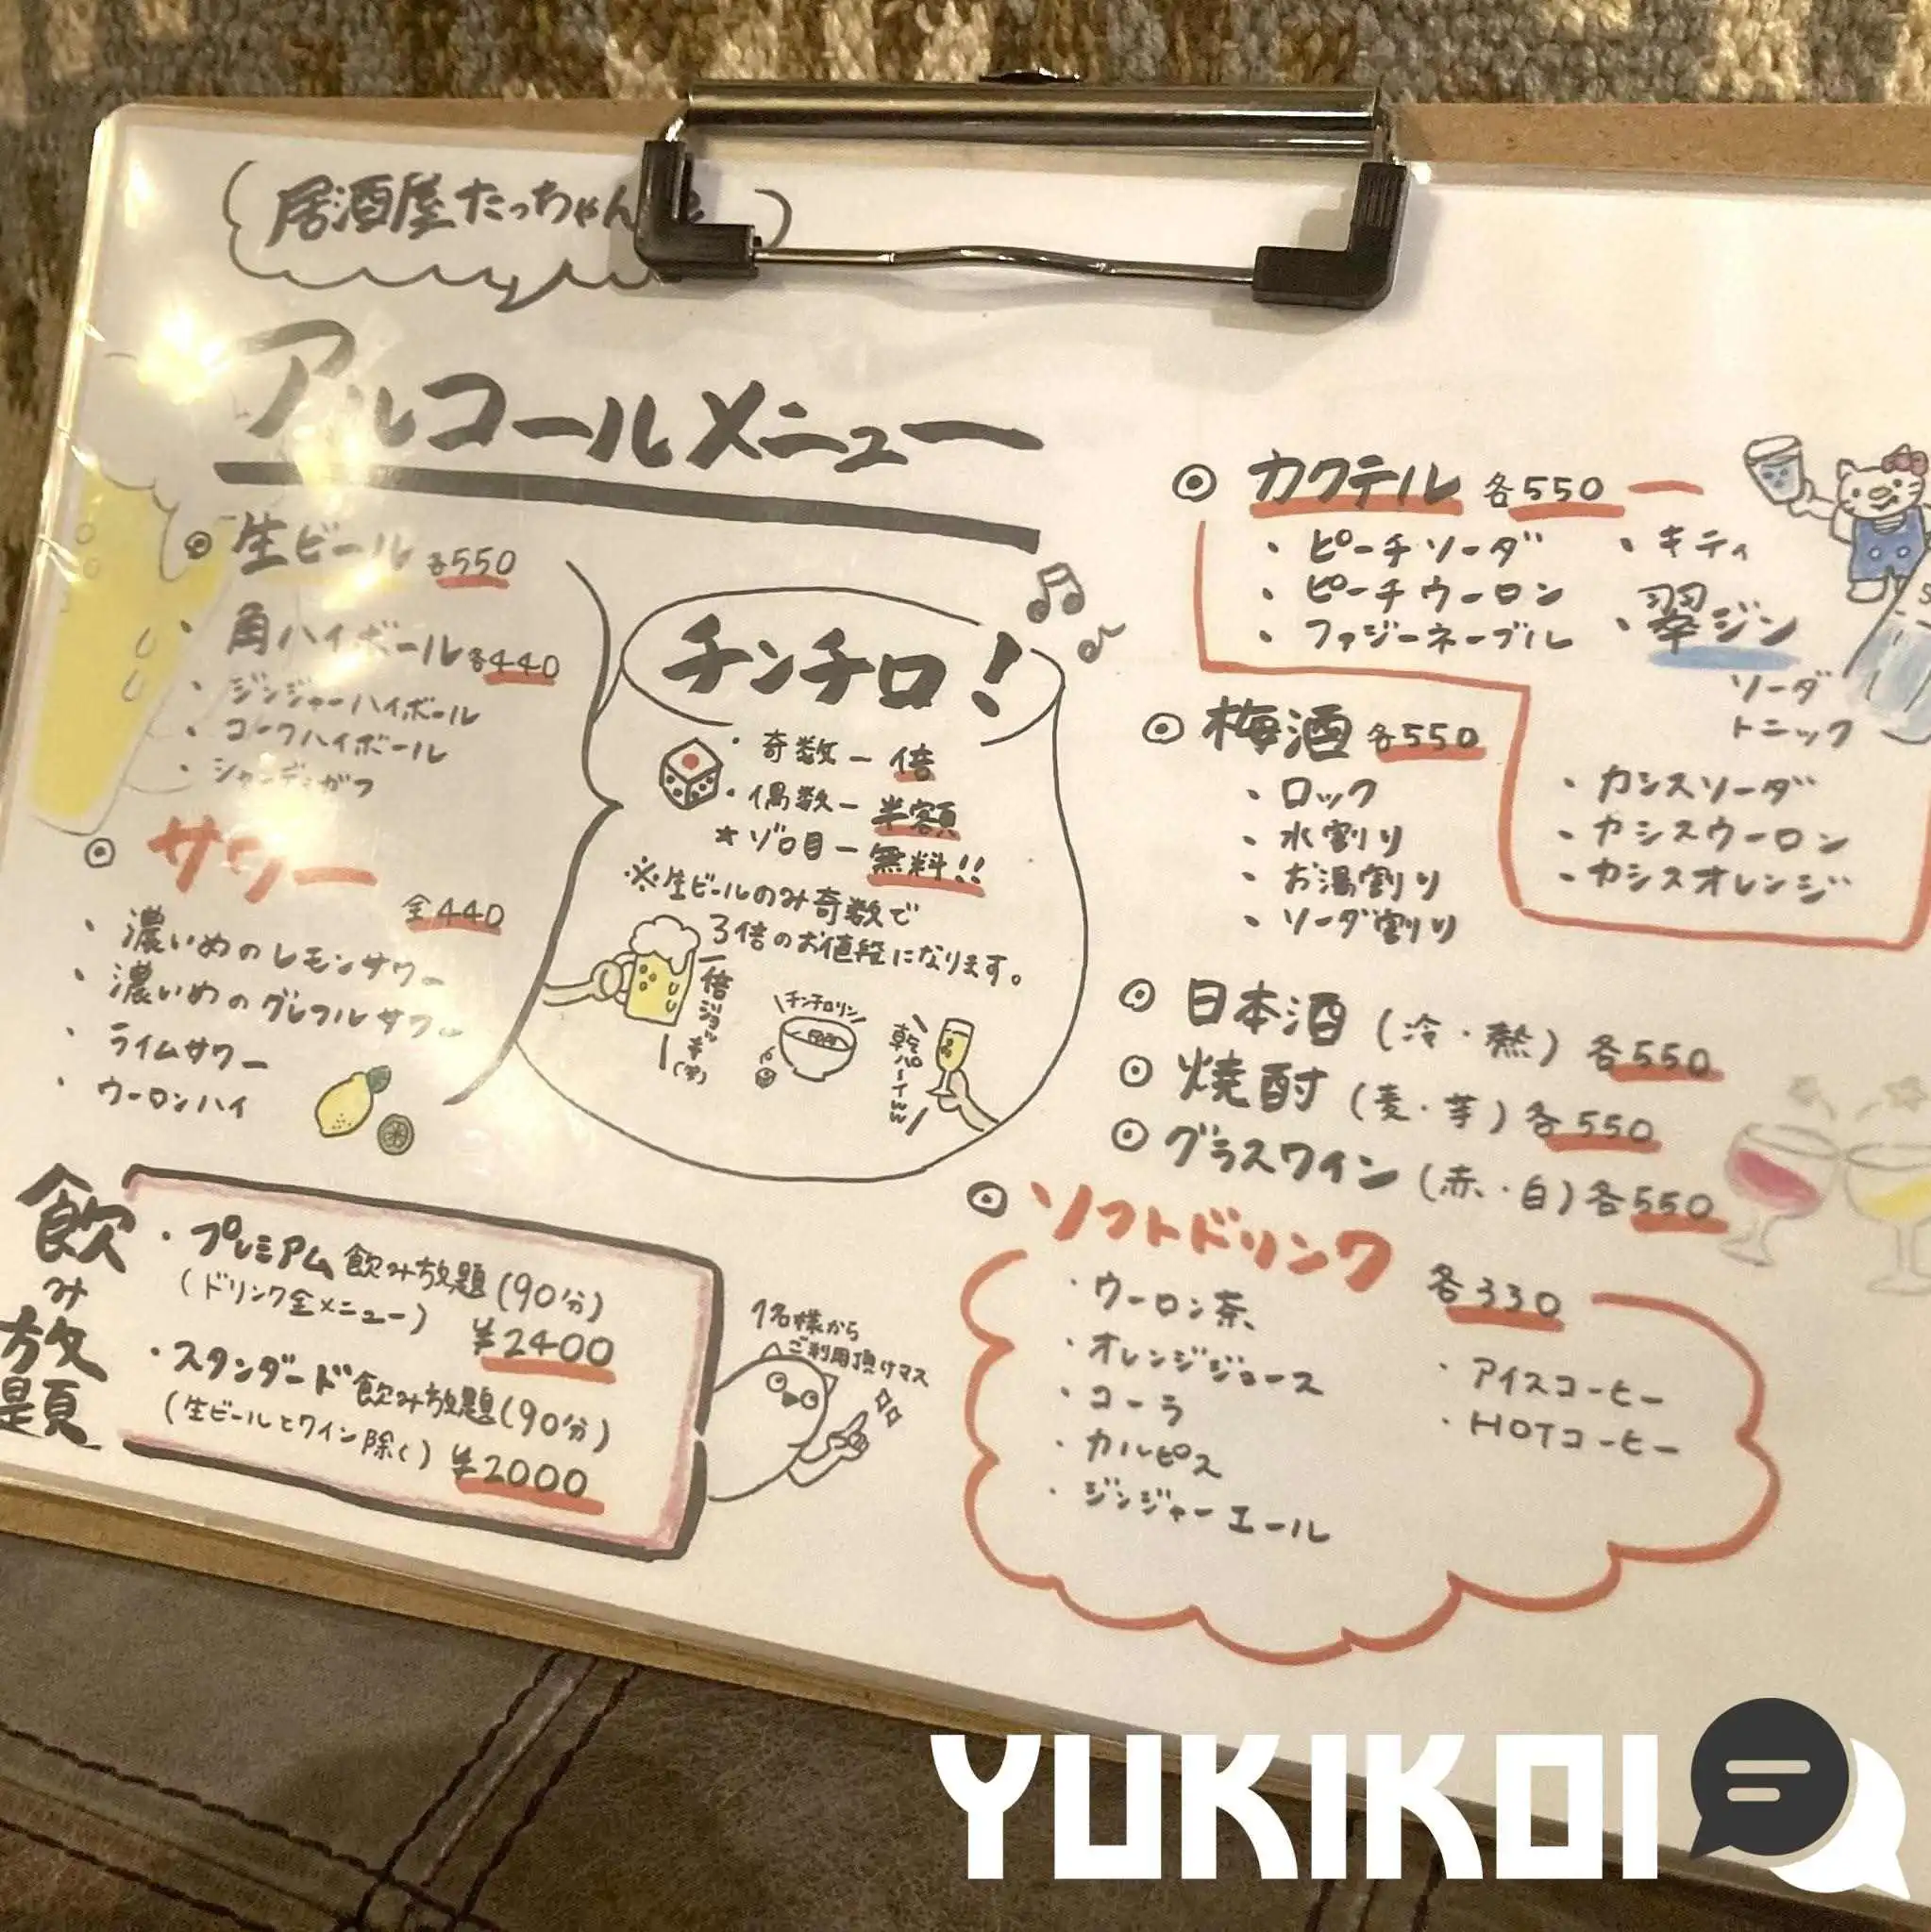 居酒屋たっちゃん
アルコールメニュー
◎ 生ビール 各550
・ 角ハイボール 各440
・ ジンジャーハイボール
・ コークハイボール
・ シャンディガフ
◎ サワー 全440
・ 濃いめのレモンサワー
・ 濃いめのグレフルサワー
・ ライムサワー
・ ウーロンハイ
チンチロ!
・ 奇数ー倍
・ 偶数ー半額
★ ゾロ目ー無料!!
※生ビールのみ奇数で
3倍のお値段になります。
倍ジョッキ
(笑)
\チンチロリン/
\乾パーイww/
飲み放題
・ プレミアム飲み放題(90分)
(ドリンク全メニュー) ¥2400
・ スタンダード飲み放題(90分)
(生ビールとワイン除く) ¥2000
1名様から
ご利用頂けマス
◎ カクテル 各550
・ ピーチソーダ
・ ピーチウーロン
・ ファジーネーブル
・ キティ
・ 翠ジン
ソーダ
トニック
・ カシスソーダ
・ カシスウーロン
・ カシスオレンジ
◎ 梅酒 各550
・ ロック
・ 水割り
・ お湯割り
・ ソーダ割り
◎ 日本酒 (冷・熱) 各550
◎ 焼酎 (麦・芋) 各550
◎ グラスワイン (赤・白) 各550
◎ ソフトドリンク 各330
・ ウーロン茶
・ オレンジジュース
・ コーラ
・ カルピス
・ ジンジャーエール
・ アイスコーヒー
・ HOTコーヒー
YUKIKOI